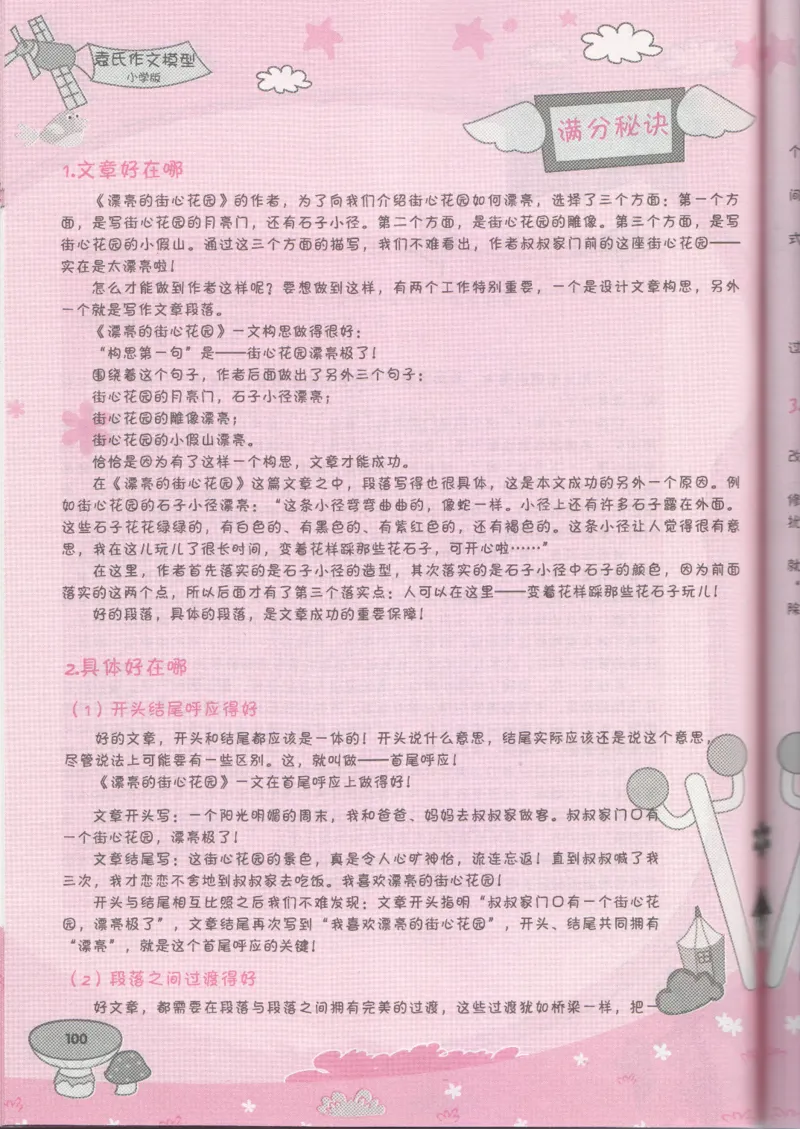 袁氏作文模型
小学版
满分秘诀
1.文章好在哪
《漂亮的街心花园》的作者，为了向我们介绍街心花园如何漂亮，选择了三个方面：第一个方
面，是写街心花园的月亮门，还有石子小径。第二个方面，是街心花园的雕像。第三个方面，是写
街心花园的小假山。通过这三个方面的描写，我们不难看出，作者叔叔家门前的这座街心花园——
实在是太漂亮啦！
怎么才能做到作者这样呢？要想做到这样，有两个工作特别重要，一个是设计文章构思，另外
一个就是写作文章段落。
《漂亮的街心花园》一文构思做得很好：
“构思第一句”是——街心花园漂亮极了！
围绕着这个句子，作者后面做出了另外三个句子：
街心花园的月亮门，石子小径漂亮；
街心花园的雕像漂亮；
街心花园的小假山漂亮。
恰恰是因为有了这样一个构思，文章才能成功。
在《漂亮的街心花园》这篇文章之中，段落写得也很具体，这是本文成功的另外一个原因。例
如街心花园的石子小径漂亮：“这条小径弯弯曲曲的，像蛇一样。小径上还有许多石子露在外面。
这些石子花花绿绿的，有白色的、有黑色的、有紫红色的，还有褐色的。这条小径让人觉得很有意
思，我在这儿玩儿了很长时间，变着花样踩那些花石子，可开心啦……”
在这里，作者首先落实的是石子小径的造型，其次落实的是石子小径中石子的颜色，因为前面
落实的这两个点，所以后面才有了第三个落实点：人可以在这里——变着花样踩那些花石子玩儿！
好的段落，具体的段落，是文章成功的重要保障！
2.具体好在哪
（1）开头结尾呼应得好
好的文章，开头和结尾都应该是一体的！开头说什么意思，结尾实际应该还是说这个意思，
尽管说法上可能要有一些区别。这，就叫做——首尾呼应！
《漂亮的街心花园》一文在首尾呼应上做得好！
文章开头写：一个阳光明媚的周末，我和爸爸、妈妈去叔叔家做客。叔叔家门口有
一个街心花园，漂亮极了！
文章结尾写：这街心花园的景色，真是令人心旷神怡，流连忘返！直到叔叔喊了我
三次，我才恋恋不舍地到叔叔家去吃饭。我喜欢漂亮的街心花园！
开头与结尾相互比照之后我们不难发现：文章开头指明“叔叔家门口有一个街心花
园，漂亮极了”，文章结尾再次写到“我喜欢漂亮的街心花园”，开头、结尾共同拥有
“漂亮”，就是这个首尾呼应的关键！
（2）段落之间过渡得好
好文章，都需要在段落与段落之间拥有完美的过渡，这些过渡犹如桥梁一样，把一
100
个
间
式
过
3.
改
修
扰
就
。
除